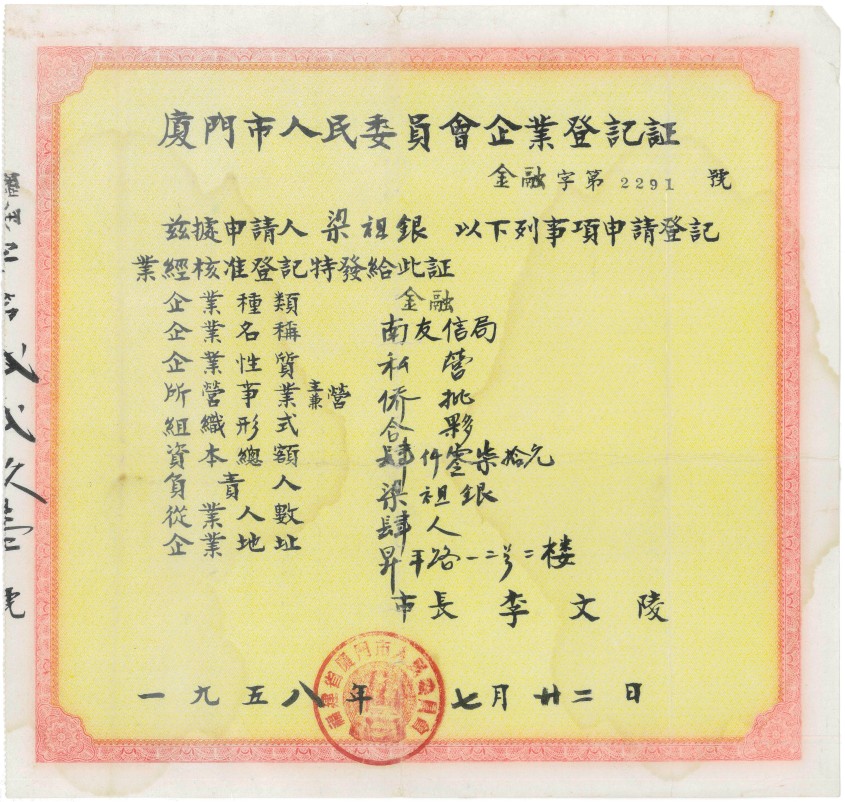 廈門市人民委員會企業登記証
金融字第 2291 號
兹據申請人 梁祖銀 以下列事項申請登記
業經核准登記特發給此証
企業種類 金融
企業名稱 南友信局
企業性質 私營
所營事業主兼營 僑批
組織形式 合夥
資本總額 肆仟零柒拾元
負責人 梁祖銀
從業人數 肆人
企業地址 昇平路一二号二楼
市長 李文陵
一九五八年七月廿二日
福建省廈門市人民委員會
貳貳久壹號